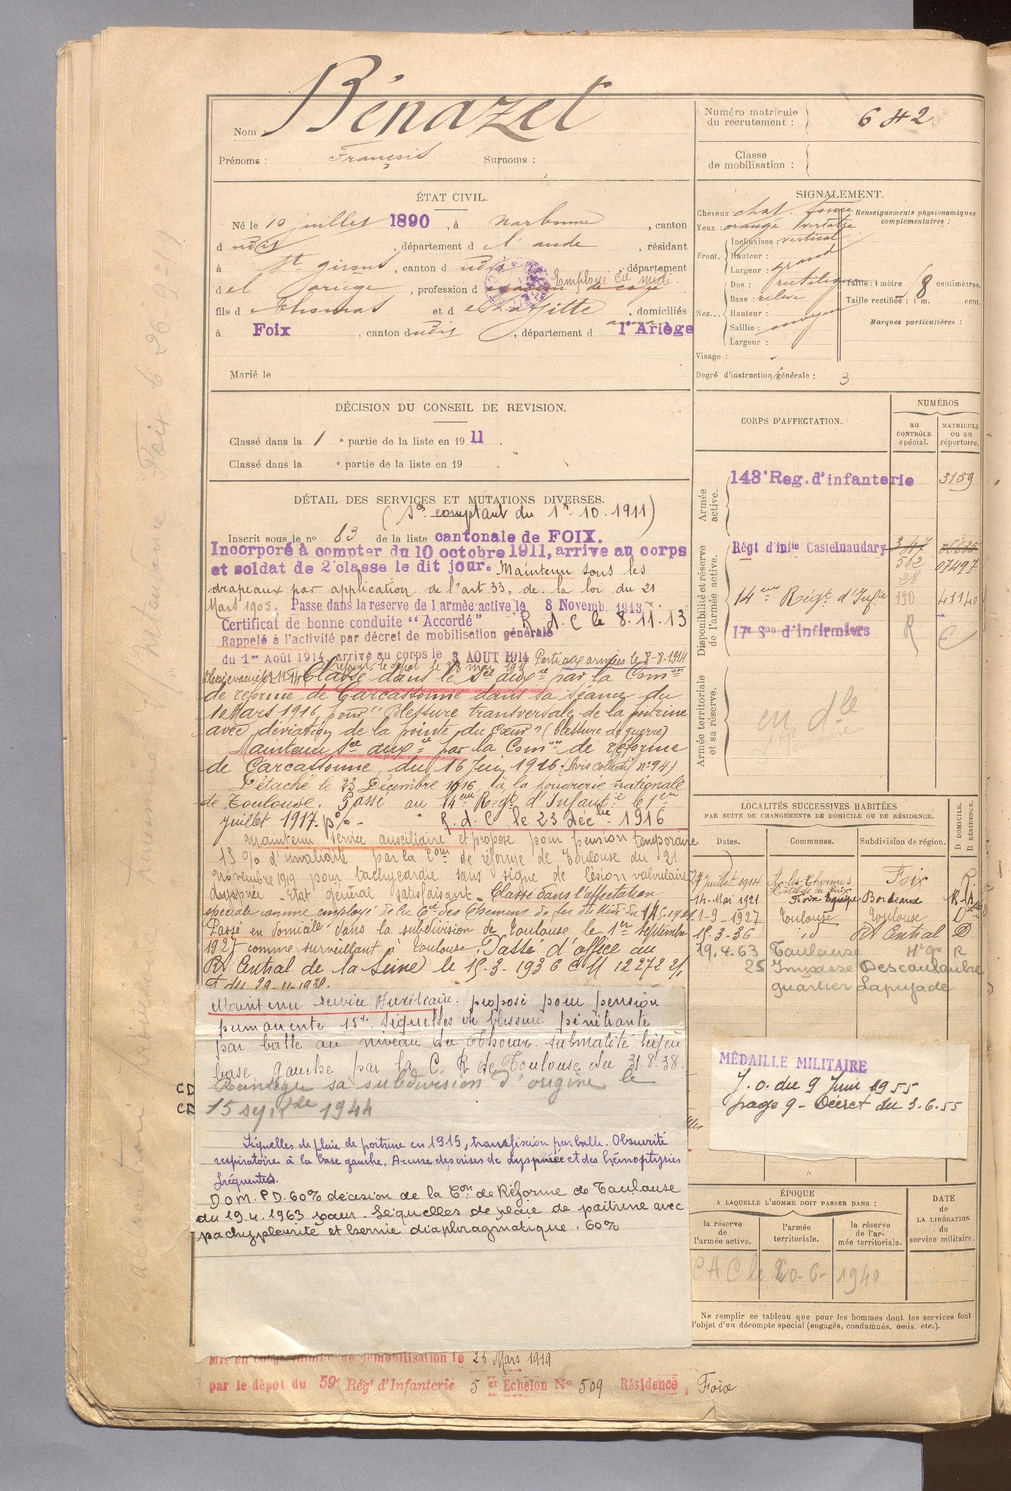 Nom Bénazet
Prénoms : François Surnoms :
Numéro matricule du recrutement : 642
Classe de mobilisation :
ÉTAT CIVIL.
Né le 10 juillet 1890, à Narbonne, canton
d udit, département d l'Aude, résidant
à St Girons, canton d udit, département
d el' Ariège, profession d Employé Cie Midi
fils d Thomas et d Lafitte, domiciliés
à Foix canton dudit, département d l'Ariège
Marié le
SIGNALEMENT.
Cheveux chat. foncé
Yeux orange verdâtre
Renseignements physionomiques complémentaires :
Front. Inclinaison : vertical
Hauteur :
Largeur : grand
Nez... Dos : rectiligne
Base : relevé
Hauteur :
Saillie : moyen
Largeur :
Visage :
Taille : 1 mètre centimètres.
Taille rectifiée : 1 m. cent.
Marques particulières :
Degré d'instruction générale : 3
DÉCISION DU CONSEIL DE REVISION.
Classé dans la 1 e partie de la liste en 1911.
Classé dans la e partie de la liste en 19
DÉTAIL DES SERVICES ET MUTATIONS DIVERSES.
(Sce comptant du 1er. 10. 1911)
Inscrit sous le no 83 de la liste cantonale de FOIX.
Incorporé à compter du 10 octobre 1911, arrivé au corps
et soldat de 2e classe le dit jour. Maintenu sous les
drapeaux par application de l'art 33, de la loi du 21
Mars 1905. Passé dans la réserve de l'armée active le 8 Novemb. 1913
Certificat de bonne conduite "Accordé" R. d. C le 8.11.13
Rappelé à l'activité par décret de mobilisation générale
du 1er Août 1914 arrivé au corps le 3 AOUT 1914 Parti aux armées le 8-8-1914
Classé dans le Sce auxre par la Comon
de réforme de Carcassonne dans sa séance du
10 Mars 1916 pour "blessure transversale de la poitrine
avec déviation de la pointe du cœur" (blessure de guerre)
Maintenu Sce auxre par la Comon de réforme
de Carcassonne, du 16 Juin 1916. (Avis collectif no 94)
Détaché le 23 Décembre 1916 à la poudrerie nationale
de Toulouse. Passé au 14eme Régt d'Infanterie le 1er
juillet 1917. R. d. C le 23 décbre 1916
Maintenu service auxiliaire et proposé pour pension temporaire
15 % d'invalidité par la Com de réforme de Toulouse du 21
novembre 1919 pour tachycardie sans signe de lésion valvulaire
dyspnée - Etat général satisfaisant. Classé dans l'affectation
spéciale comme employé de la Cie des Chemins de fer du Midi
Passé en domicile dans la subdivision de Toulouse le 1er septembre
1927 comme surveillant à Toulouse. Passé d'office au
RA Central de la Seine le 15-3-1936 C M 12272
Maintenu Service Auxiliaire. proposé pour pension
permanente 15%. Séquelles de blessure pénétrante
par balle au niveau du thorax. submatité légère
base gauche par la C. R de Toulouse du 31.8.38.
Réintégré sa subdivision d'origine le
15 septbre 1944
Séquelles de plaie de poitrine en 1915, transfixion par balle. Obscurité
respiratoire à la base gauche. Accuse des crises de dyspnée et des hémoptysies
fréquentes.
D.O.M. P.D. 60% décision de la Con de Réforme de Toulouse
du 19.4.1963 pour. Séquelles de plaie de poitrine avec
pachypleurite et hernie diaphragmatique. 60%
Mis en congé illimité de démobilisation le 28 Mars 1919
par le dépôt du 59e Régt d'Infanterie 5 er Echelon No 509 Résidence, Foix
CORPS D'AFFECTATION.
NUMÉROS
au contrôle spécial.
matricule ou au répertoire.
Armée active.
143e Reg. d'infanterie 3159
Disponibilité et réserve de l'armée active.
Régt d'infie Castelnaudary
14eme Régt d'Infie 130 41140
17e Son d'infirmiers
Armée territoriale et sa réserve.
en dle
LOCALITÉS SUCCESSIVES HABITÉES
PAR SUITE DE CHANGEMENTS DE DOMICILE OU DE RÉSIDENCE.
Dates. Communes. Subdivision de région. D. DOMICILE. R. RÉSIDENCE.
7 juillet 1914 Ax-les-Thermes Foix
14-Mai 1921 Bordeaux R
1-9-1927 Toulouse Toulouse D
15-3-36 id RA Central D
19.4.63 Toulouse Hte Gne R
25 Impasse Descouloubre
quartier Lapujade
MÉDAILLE MILITAIRE
J. o. du 9 Juin 1955
page 9 - Décret du 3.6.55
ÉPOQUE
A LAQUELLE L'HOMME DOIT PASSER DANS :
la réserve de l'armée active.
l'armée territoriale.
la réserve de l'armée territoriale.
DATE de LA LIBÉRATION du service militaire.
CAC le 20-6-1940
Ne remplir ce tableau que pour les hommes dont les services font
l'objet d'un décompte spécial (engagés, condamnés, omis, etc.).